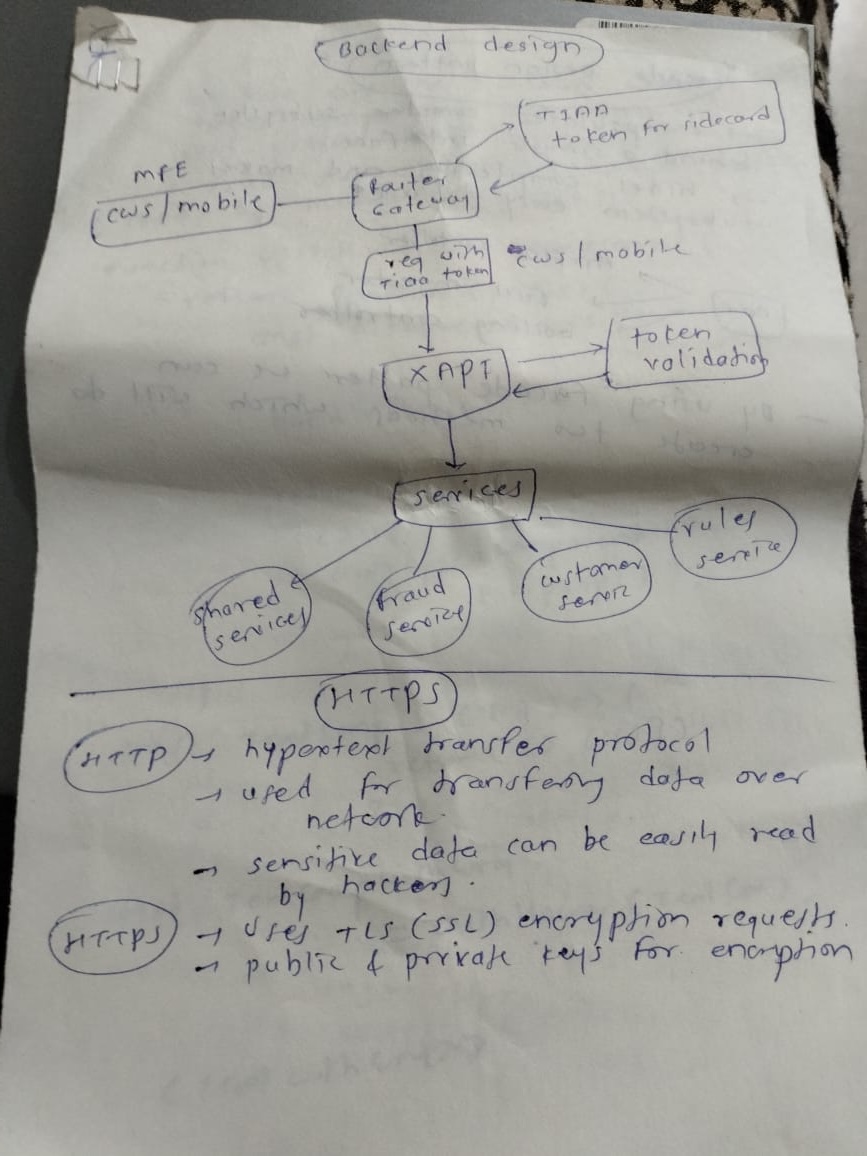 Backend design
TIAA
token for sidecard
MFE
cws/mobile
Gateway
req with
Tiaa token
cws/mobile
XAPI
token
validation
services
shared
services
fraud
service
customer
servic
rules
service
HTTPS
HTTP → hypertext transfer protocol
→ used for transfering data over
network.
→ sensitive data can be easily read
by hackers.
HTTPS → Uses TLS (SSL) encryption requests.
→ public & private keys for encryption